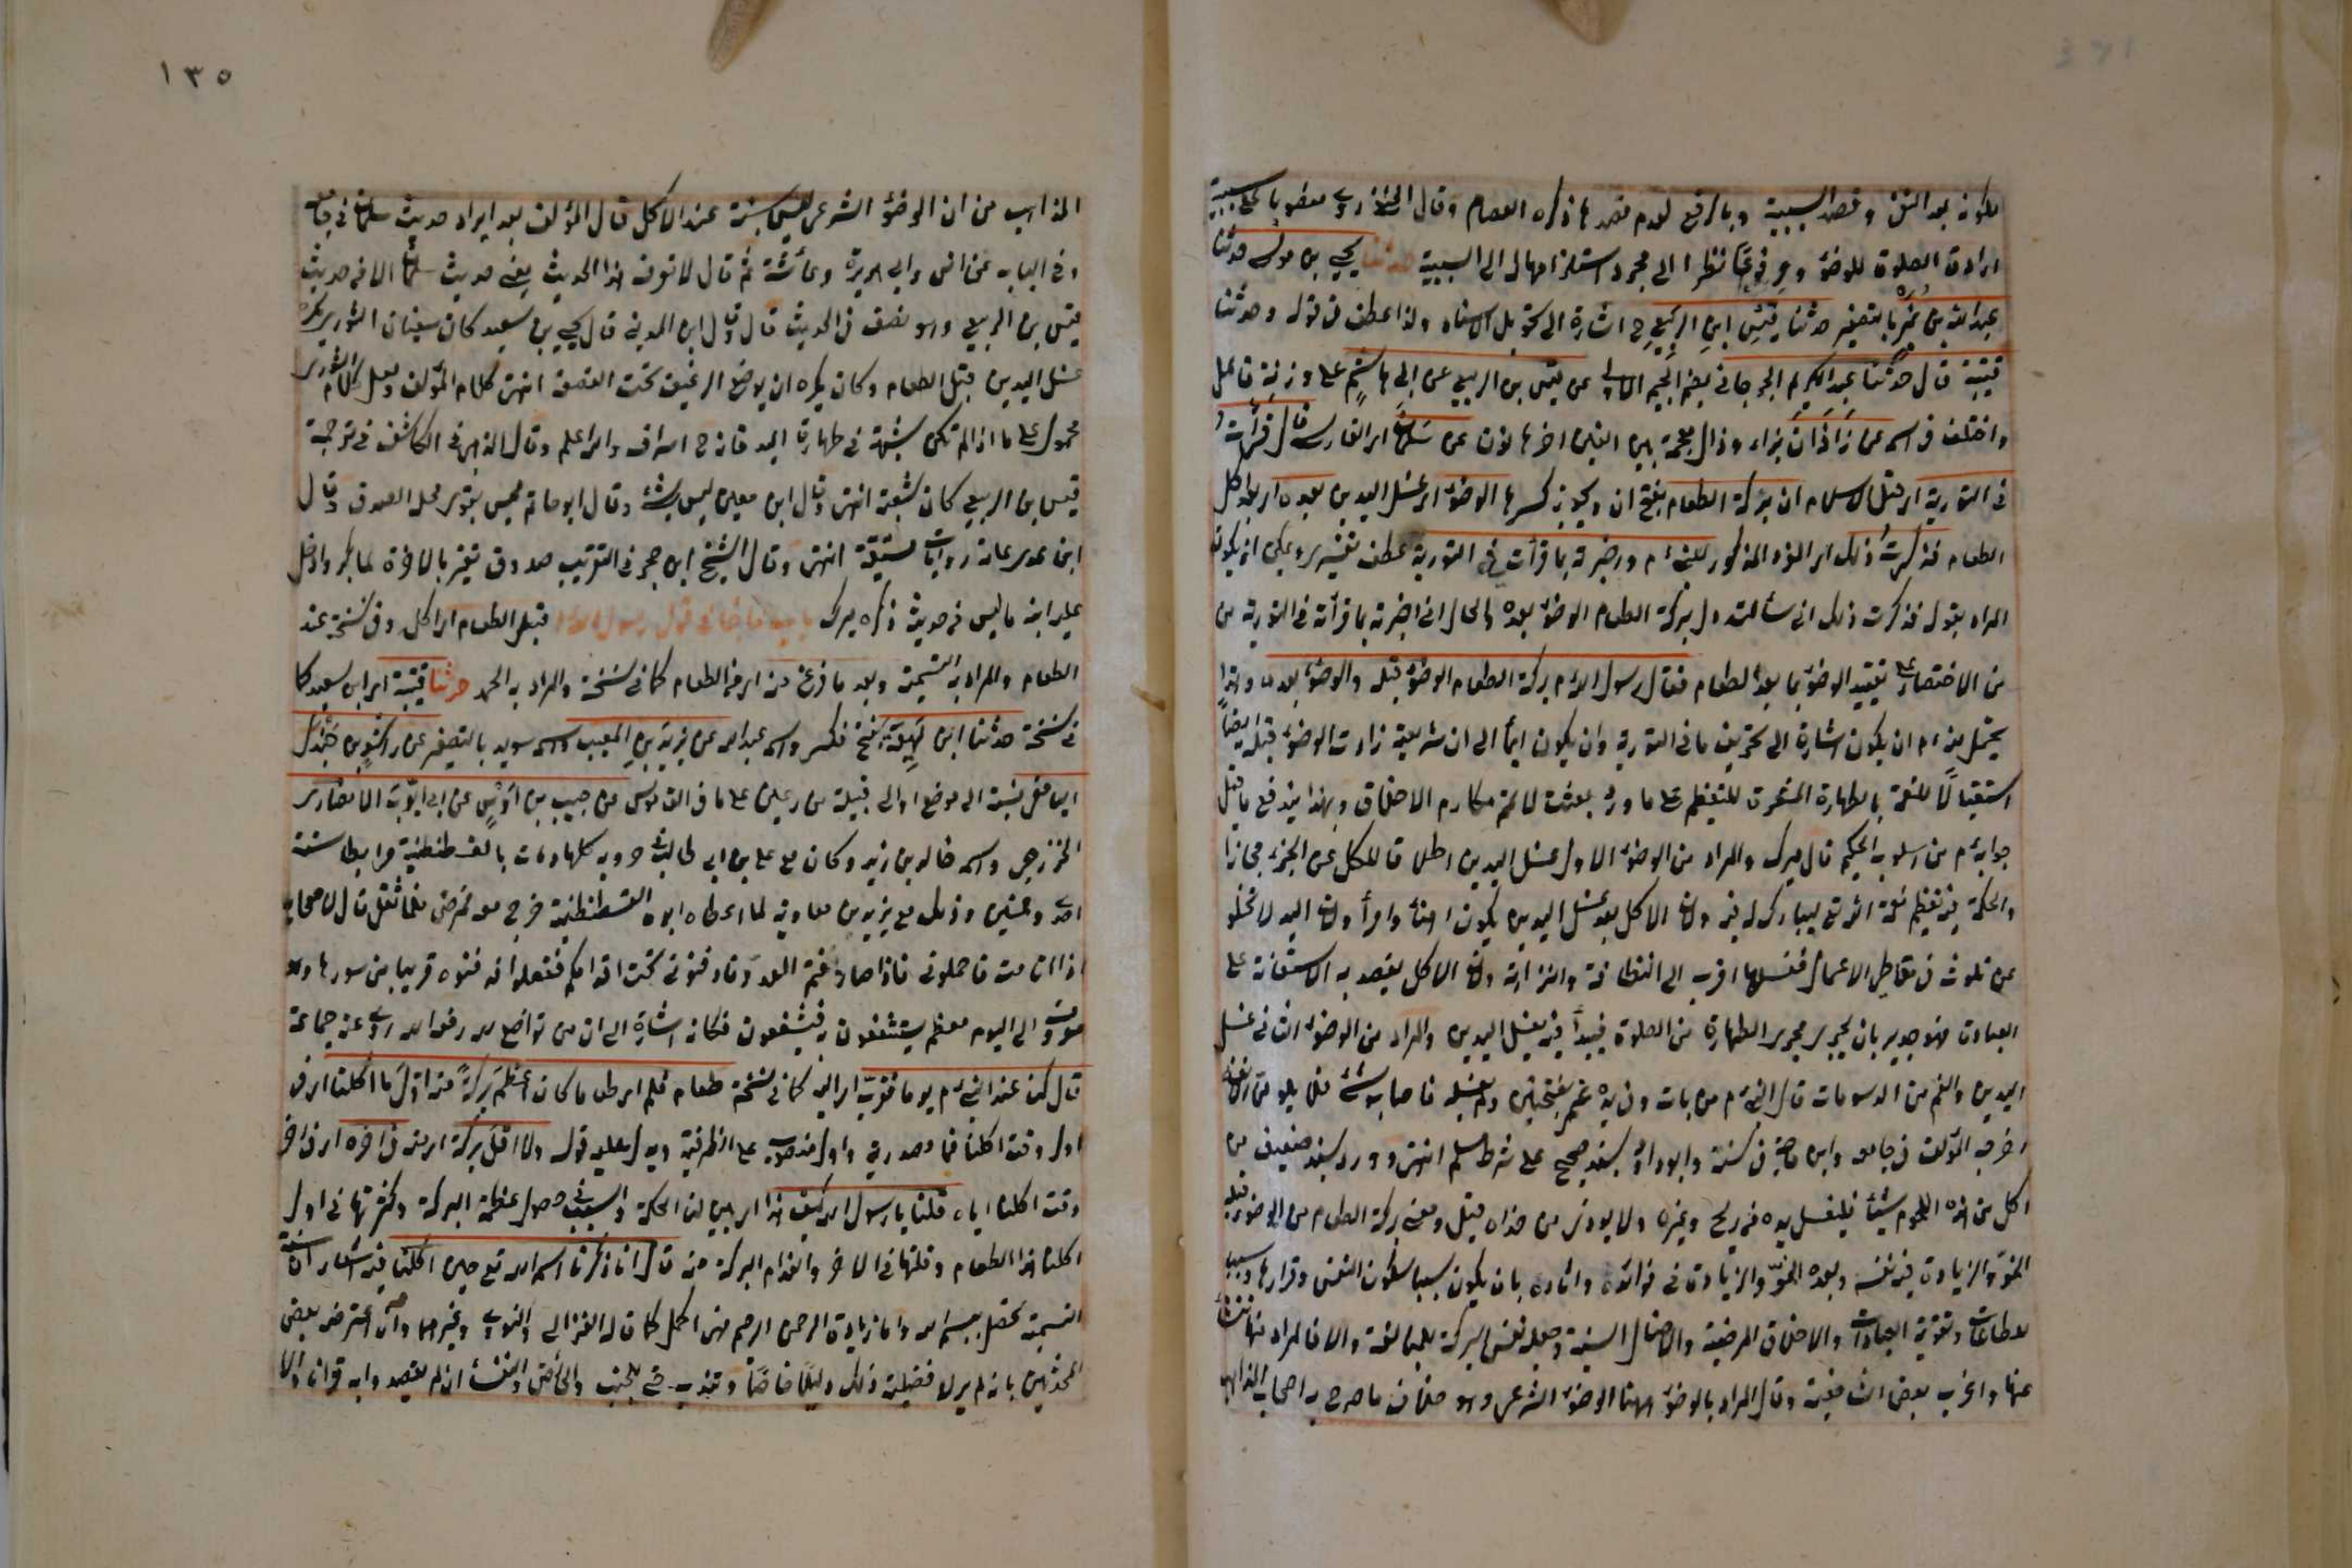 لكونه بعد النفى وقصد السببية وبالرفع لعدم قصدها ذكره العصام وقال الحنفى روى منصوبا على سببية
ارادة الصلوة للوضؤ ومرفوعا نظرا الى مجرد استلزامها له الى السببية حدثنا يحيى بن موسى حدثنا
عبد الله بن نمير بالتصغير حدثنا قيس ابن الربيع ح اشارة الى تحويل الاسناد ولذا عطف فى قوله وحدثنا
قتيبة قال حدثنا عبد الكريم الجرجانى بضم الجيم الاولى عن قيس بن الربيع عن ابى هاشم
واختلف فى اسمه عن زاذان بزاء وذال معجمة بين الفين اخرها نون عن سلمان اى الفارسى قال قرأت
فى التورية اى قبل الاسلام ان بركة الطعام بفتح ان ويجوز كسرها الوضوء اى غسل اليدين بعده اى بعد اكل
الطعام فذكرت ذلك اى المقرؤ المذكور للنبى م واخبرته بما قرأت فى التورية عطف تفسيرى ويمكن ان يكون
المراد بقوله فذكرت ذلك انى سألته هل بركة الطعام الوضوء بعده والحال انى اخبرته بما قرأته فى التورية من
من الاختصار على تقييد الوضوء بما بعد الطعام فقال رسول الله م بركة الطعام الوضوء قبله والوضوء بعده وهذا
يحتمل منه م ان يكون اشارة الى تحريف ما فى التورية وان يكون ايماء الى ان شريعته زادت الوضوء قبله ايضا
استقبالا للنعمة بالطهارة المشعرة للتعظيم على ما ورد بعثت لاتمم مكارم الاخلاق وبهذا يندفع ما قيل
جوابه م من اسلوب الحكيم قال ميرك والمراد من الوضوء الاول غسل اليدين اطلاقا للكل على الجزء مجازا
والحكمة فيه تعظيم نعمة الله تع ليبارك له فيه ولان الاكل بعد غسل اليدين يكون اهنأ وامرأ ولان اليد لا تخلو
عن تلوث فى تعاطى الاعمال فغسلها اقرب الى النظافة والنزاهة ولان الاكل يقصد به الاستعانة على
العبادة فهو جدير بان يجرى مجرى الطهارة من الصلوة فيبدأ فيه بغسل اليدين والمراد من الوضوء الثانى غسل
اليدين والفم من الدسومات قال النبى م من بات وفى يده غمر بفتحتين ولم يغسله فاصابه شئ فلا يلومن الا نفسه
اخرجه المؤلف فى جامعه وابن ماجة فى سننه وابو داود بسند صحيح على شرط مسلم انتهى وورد بسند ضعيف من
اكل من هذه اللحوم شيئا فليغسل يده من ريح وغيره ولا يؤذى من حذاه قيل ومعنى بركة الطعام من الوضوء قبله
النمو والزيادة فيه نفسه وبعده النمو والزيادة فى فوائده واثاره بان يكون سببا لسكون النفس وقرارها وسببا
للطاعات وتقوية العبادات والاخلاق المرضية والافعال السنية وجعله نفس البركة للمبالغة والا فالمراد انها تنشأ
عنها واغرب بعض الشافعية وقال المراد بالوضوء ههنا الوضوء الشرعى وهو خلاف ما صرح به اصحاب المذاهب
١٣٥
المذاهب من ان الوضوء الشرعى ليس بسنة عند الاكل قال المؤلف بعد ايراد حديث سلمان فى جامعه
وفى الباب عن انس وابى هريرة وعائشة ثم قال لا نعرف هذا الحديث يعنى حديث سلمان الا من حديث
قيس بن الربيع وهو يضعف فى الحديث قال وقال ابن المدينى قال يحيى بن سعيد كان سفيان الثورى يكره
غسل اليدين قبل الطعام وكان يكره ان يوضع الرغيف تحت القصعة انتهى كلام المؤلف ولعل كلام الثورى
محمول على ما اذا لم تكن شبهة فى طهارة اليد فانه ح اسراف والله اعلم وقال الذهبى فى الكاشف فى ترجمة
قيس بن الربيع كان شعبة انتهى وقال ابن معين ليس بشئ وقال ابو حاتم ليس بقوى محله الصدق وقال
ابن عدى عامة رواياته مستقيمة انتهى وقال الشيخ ابن حجر فى التقريب صدوق تغير بالاخرة لما كبر وادخل
عليه ابنه ما ليس من حديثه ذكره ميرك باب ما جاء فى قول رسول الله م قبل الطعام اى اكل وفى نسخة عند
الطعام والمراد به التسمية وبعد ما فرغ منه اى من الطعام كما فى نسخة والمراد به الحمد حدثنا قتيبة اى ابن سعيد كما
فى نسخة حدثنا ابن لهيعة بفتح فكسر واسمه عبد الله عن يزيد بن ابى حبيب واسمه سويد بالتصغير عن راشد بن جندل
اليافعى نسبة الى موضع او الى قبيلة من رعين على ما فى القاموس عن حبيب بن اوس عن ابى ايوب الانصارى
الخزرجى واسمه خالد بن زيد وكان مع على بن ابى طالب حروبه كلها ومات بالقسطنطنية مرابطا سنة
احدى وخمسين وذلك مع يزيد بن معاوية لما اعطاه ابوه القسطنطنية خرج معه فمرض فلما ثقل قال لاصحابه
اذا انا مت فاحملونى فاذا صاففتم العدو فادفنونى تحت اقدامكم ففعلوا فدفنوه قريبا من سورها وهو
معروف الى اليوم معظم يستشفون به فيشفون فكانه اشارة الى ان من تواضع لله رفعه الله روى عنه جماعة
قال كنا عند النبى م يوما فقرب اى اليه كما فى نسخة طعام فلم ار طعاما كان اعظم بركة منه اول ما اكلنا اى فى
اول وقت اكلنا فما مصدرية واول منصوب على الظرفية ويدل عليه قوله ولا اقل بركة اى منه فى اخره اى فى اخر
وقت اكلنا اياه قلنا يا رسول الله كيف هذا اى بين لنا الحكمة والسبب فى حصول عظمة البركة وكثرتها فى اول
اكلنا هذا الطعام وقلتها فى الاخر وانعدام البركة منه قال انا ذكرنا اسم الله تع حين اكلنا فيه اشعار ان سنة
التسمية تحصل ببسم الله واما زيادة الرحمن الرحيم فهى اكمل كما قاله الغزالى والنووى وغيرهما وان اعترضه بعض
المحدثين بانه لم ير لافضلية ذلك دليلا خاصا وتندب حتى للجنب والحائض والنفساء ان لم يقصدوا به قرانا والا